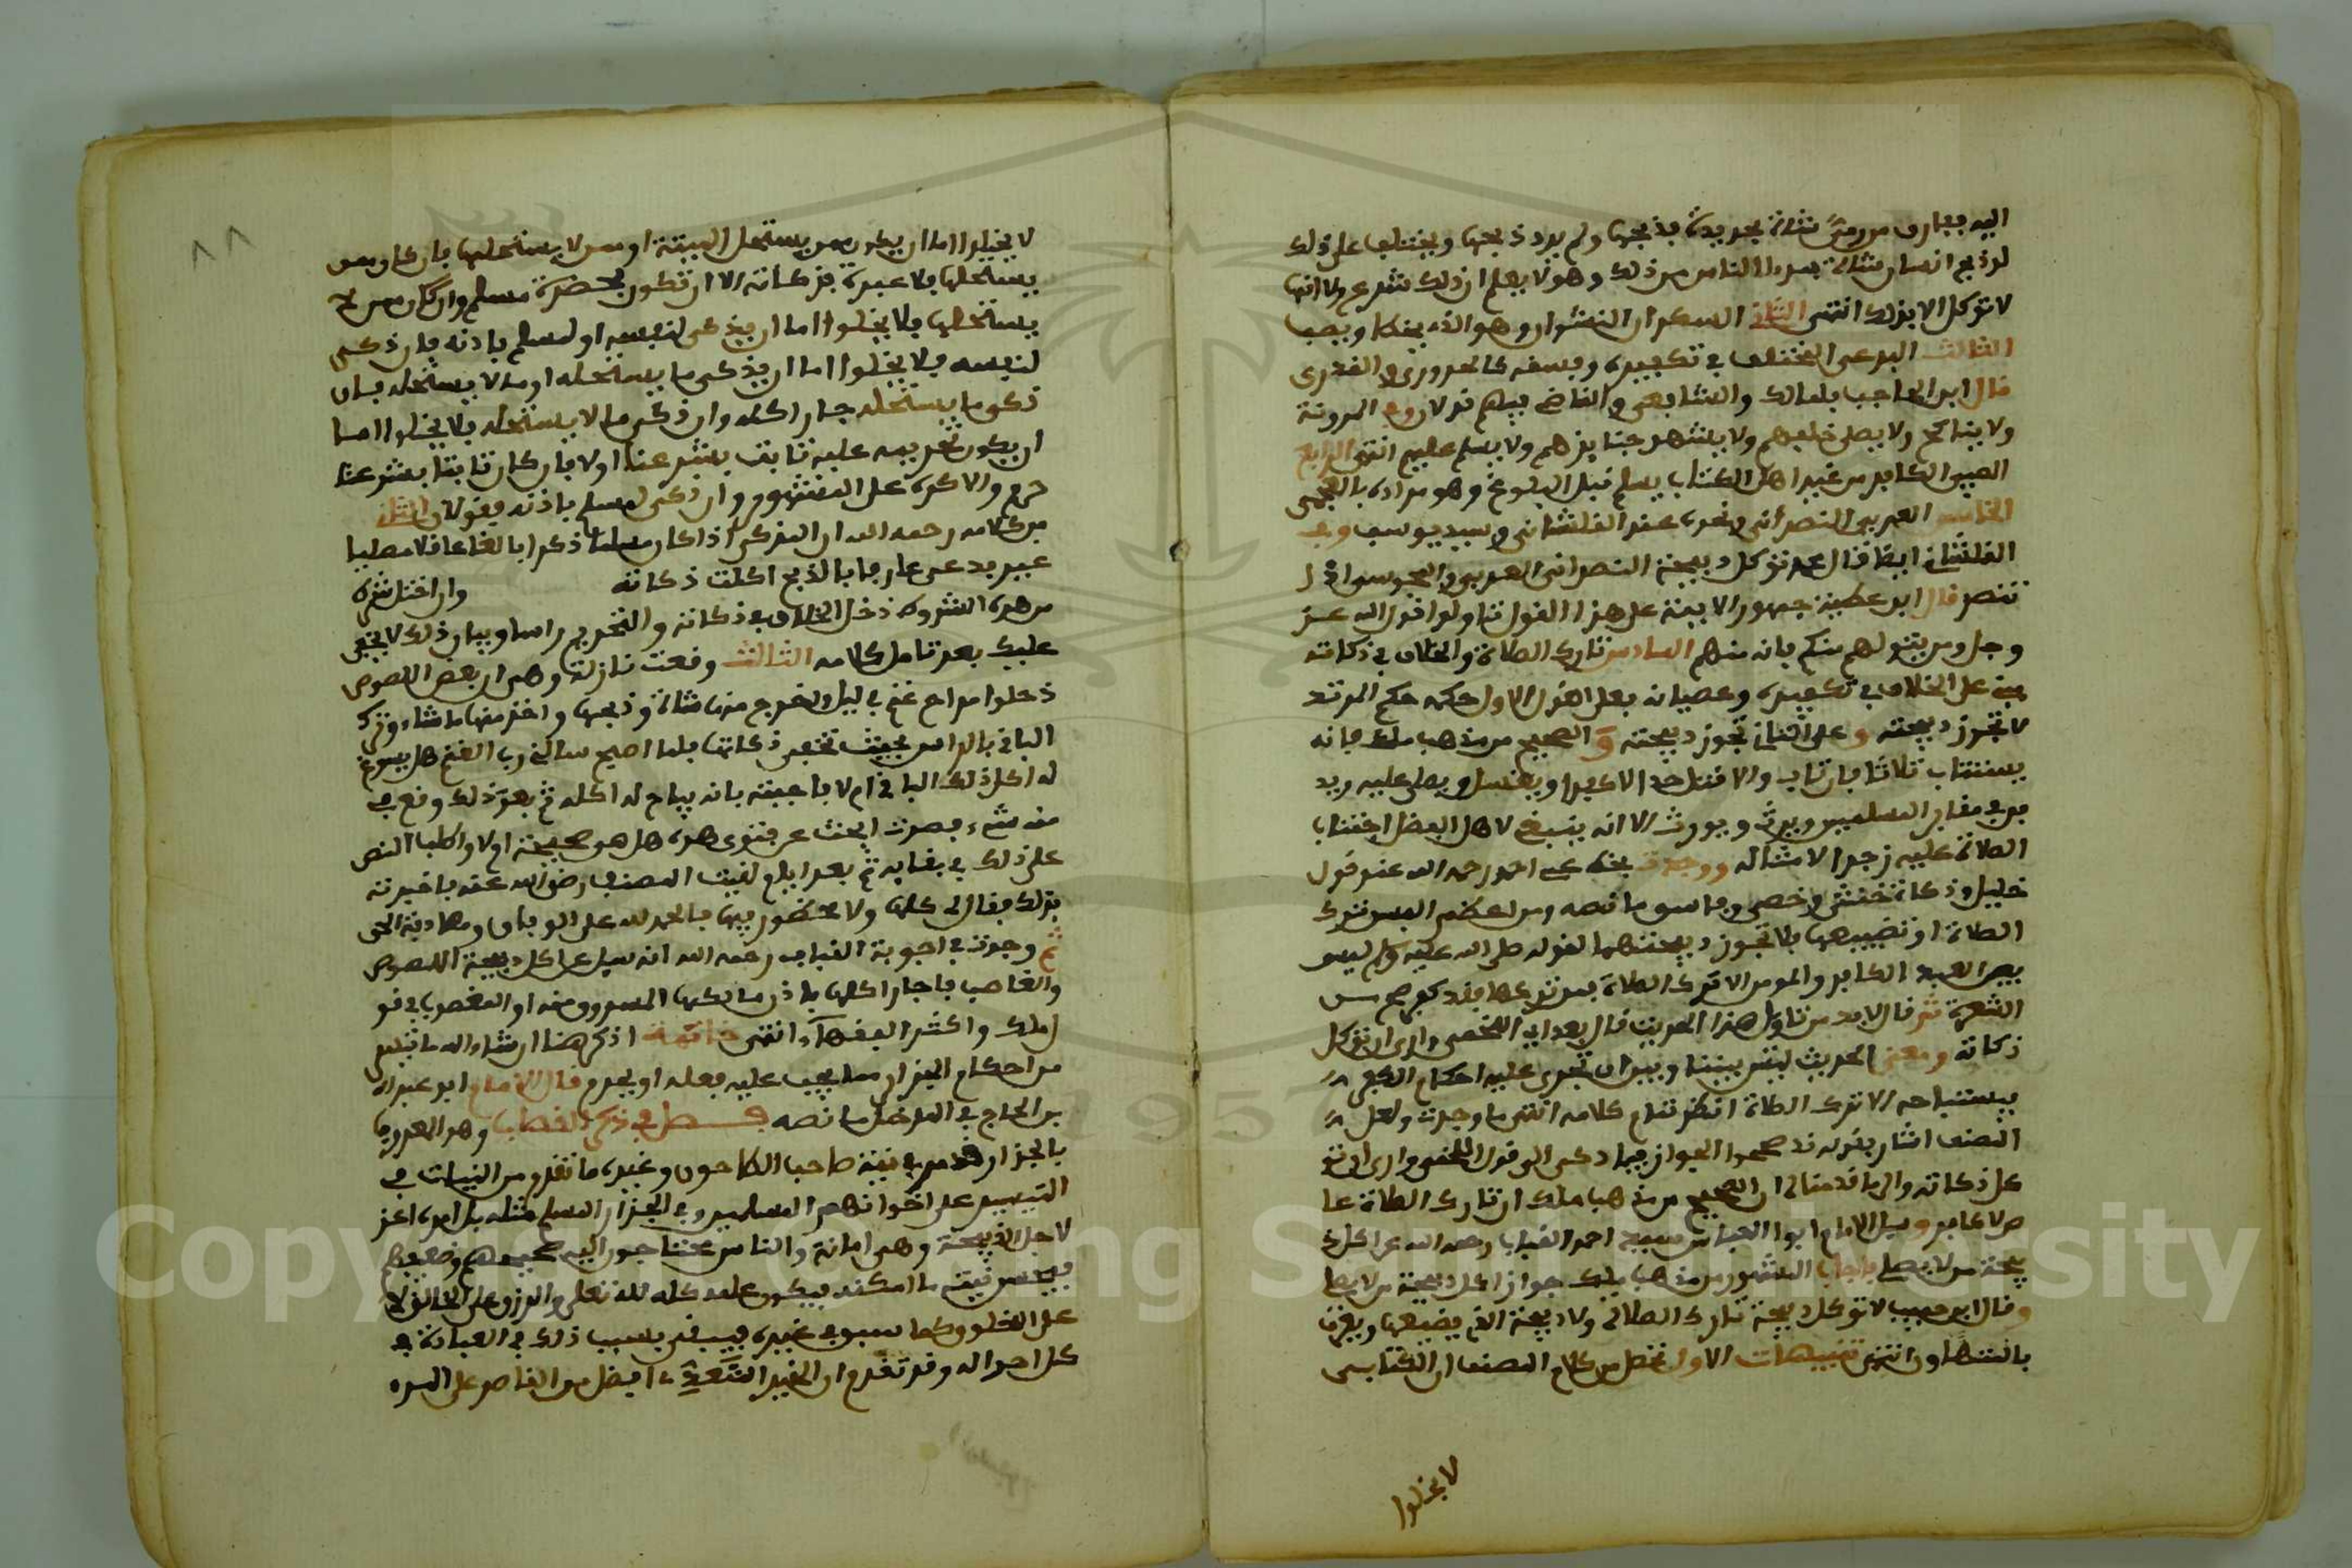 اليه ففارق من رمى شاة بحريدة فذبحها ولم يرد ذبحها ويختلف على ذلك
لو ذبح انسان شاة الناس من ذلك وهو لا يعلم ان ذلك شرع ولا انها
لا توكل الا بذلك انتهى الثاني السكران النشوان وهو الذي يخطئ ويصيب
الثالث البدعي المختلف في تكفيره وفسقه كالحروري والقدري
قال ابن الحاجب ولمالك والشافعي والقاضي فيهم قولان وفي المدونة
ولا يناكح ولا يصلى خلفهم ولا يشهد جنايزهم ولا يسلم عليهم انتهى الرابع
الصبي الكافر من غير اهل الكتاب يسلم قبل البلوغ وهو مراده بالعجمي
الخامس العربي النصراني ونحوه عند القلشاني وسيدي يوسف وفي
القلشاني ايضا قال محمد توكل ذبيحة النصراني العربي والمجوسي اذا
تنصر قال ابن عطية جمهور الائمة على هذا القول تاولوا قول الله عز
وجل ومن يتولهم منكم فانه منهم السادس تارك الصلاة والخلاف في ذكاته
مبني على الخلاف في تكفيره وعصيانه فعلى القول الاول حكمه حكم المرتد
لا تجوز ذبيحته وعلى الثاني تجوز ذبيحته والصحيح من مذهب ملك فانه
يستتاب ثلاثا فان تاب والا قتل حدا لا كفرا ويغسل ويصلى عليه ويد
فن في مقابر المسلمين ويرث ويورث الا انه ينبغي لاهل الفضل اجتناب
الصلاة عليه زجرا لامثاله ووجدت بخط عمي احمد رحمه الله عند قول
خليل وذكاة خنثى وخصي وفاسق ما نصه ومن اعظم الفسق ترك
الصلاة او تضييعها فلا تجوز ذبيحتهما لقوله صلى الله عليه وسلم ليس
بين العبد الكافر والمومن الا ترك الصلاة فمن تركها فقد كفر صح من
ثم قال لابد من تاول هذا الحديث قال بعد ابي اللخمي وارى ان توكل
ذكاته ومعنى الحديث ليس بيننا وبين ان تجرى عليه احكام الكفر
فيستباح دمه الا ترك الصلاة انظر تمام كلامه انتهى ما وجدت ولعل
المصنف اشار بقوله قد صححوا الجواز فيما ذكى الى قول اللخمي وارى ان تو
كل ذكاته والى ما قدمناه ان الصحيح من مذهب ملك ان تارك الصلاة عا
ص لا كافر وسيل الامام ابوا العباس سيدي احمد القباب رحمه الله عن اكل ذ
بيحة من لا يصلي فاجاب المشهور من مذهب ملك جواز اكل ذبيحة من لا يصلي
وقال ابن حبيب لا توكل ذبيحة تارك الصلاة ولا ذبيحة الذي يضيعها ويعرف
بالتهاون انتهى تنبيهات الاول تحصل من كلام المصنف ان الكتابي
لا يخلوا
٨٨
لا يخلوا اما ان يكون ممن يستحل الميتة او ممن لا يستحلها فان كان ممن
يستحلها فلا عبرة بذكاته الا ان تكون بحضرة مسلم وان كان ممن لا
يستحلها فلا يخلوا اما ان يذكى لنفسه او لمسلم باذنه فان ذكى
لنفسه فلا يخلوا اما ان يذكى ما يستحله او ما لا يستحله فان
ذكى ما يستحله جاز اكله وان ذكى ما لا يستحله فلا يخلوا اما
ان يكون تحريمه عليه ثابت بشرعنا اولا فان كان ثابتا بشرعنا
حرم والا كره على المشهور وان ذكى لمسلم باذنه فقولان الثاني
من كلامه رحمه الله ان المذكي اذا كان مسلما ذكرا بالغا عاقلا مصليا
غير بدعي عارفا بالذبح اكلت ذكاته وان اختل شرط
من هذه الشروط دخل الخلاف في ذكاته والتحريم راسا وبيان ذلك لا يخفى
عليك بعد تامل كلامه الثالث وقعت نازلة وهي ان بعض اللصوص
دخلوا مراح غنم في ليل واخرج منها شاة وذبحها واخذ منها ما شاء وترك
الباقي بالراس بحيث تخفى ذكاتها فلما اصبح سالني رب الغنم هل يسوغ
له اكل ذلك الباقي ام لا فاجبته بانه يباح له اكله ثم بعد ذلك وقع في
منه شيء فصرت ابحث عن فتوى هذه هل هي صحيحة ام لا واطلب النص
على ذلك في بقايه ثم بعد ايام لقيت المصنف رضي الله عنه فاخبرته
بذلك فقال لي كلها ولا محظور فيها فالحمد لله على الوفاق ومصادفة الحق
ثم وجدت في اجوبة القباب رحمه الله انه سيل عن اكل ذبيحة اللصوص
والغاصب فاجاز اكلها باذن مالكها المسروق منه او المغصوب في قو
ل ملك واكثر الفقهاء انتهى خاتمة اذكر هنا ان شاء الله ما تيسر
من احكام الجزار مما يجب عليه فعله او يحرم قال الامام ابو عبد الله
بن الحاج في المدخل ما نصه فصل في ذكر القصاب وهو المعروف
بالجزار قد مر في نية صاحب الطاحون وغيره ما تقدم من النيات في
التيسير على اخوانهم المسلمين وفي الجزار المسلم مثله بل امره اعز
لاجل الذبيحة وهي امانة والناس محتاجون اليه صحيحهم وضعيفهم
فيحسن نيته ما امكنه فيكون عمله كله لله تعالى والرزق على الخالق لا
على المخلوق كما سبق في غيره فيبقى بسبب ذلك في العبادة في
كل احواله وقد تقدم ان الخير المتعدي افضل من القاصر على المرء